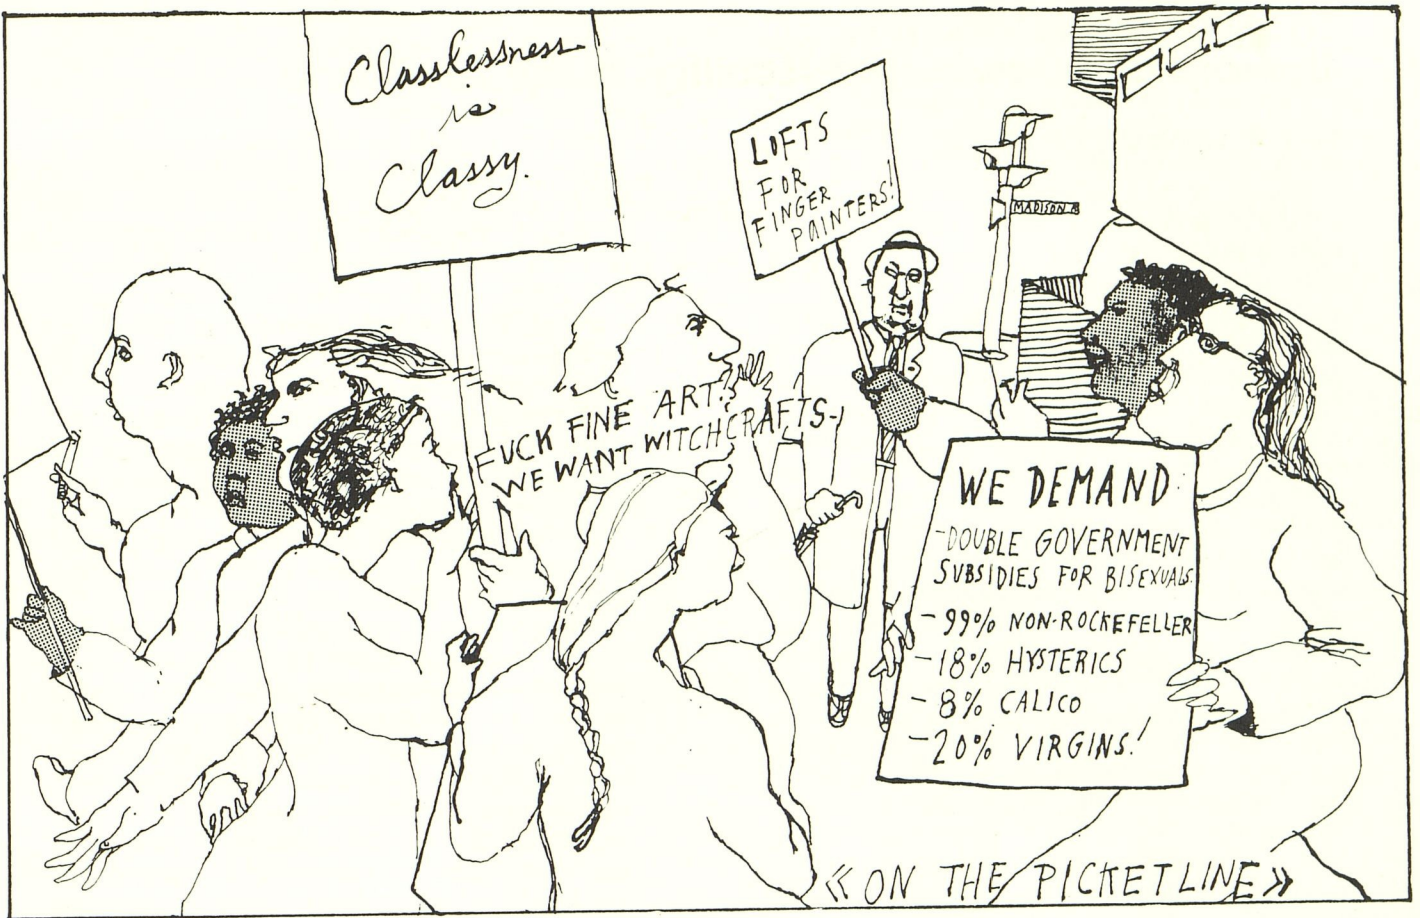 Classlessness
is
Classy.
LOFTS
FOR
FINGER
PAINTERS!
MADISON A
FUCK FINE ART!
WE WANT WITCHCRAFTS-
WE DEMAND
-DOUBLE GOVERNMENT
SUBSIDIES FOR BISEXUALS.
-99% NON-ROCKEFELLER
-18% HYSTERICS
-8% CALICO
-20% VIRGINS!
«ON THE PICKETLINE»